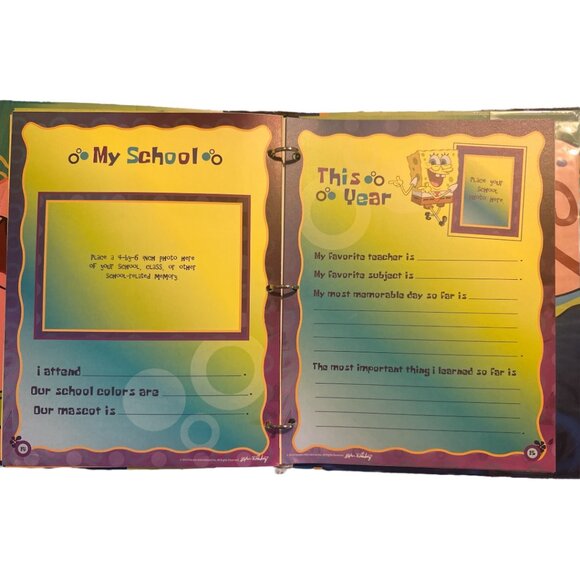 My School
Place a 4-by-6 inch photo here
of your school, class, or other
school-related memory.
I attend ______________________.
Our school colors are __________.
Our mascot is __________________.
This
Year
Place your
school
photo here
My favorite teacher is ______________.
My favorite subject is ______________.
My most memorable day so far is ______________
The most important thing I learned so far is
15